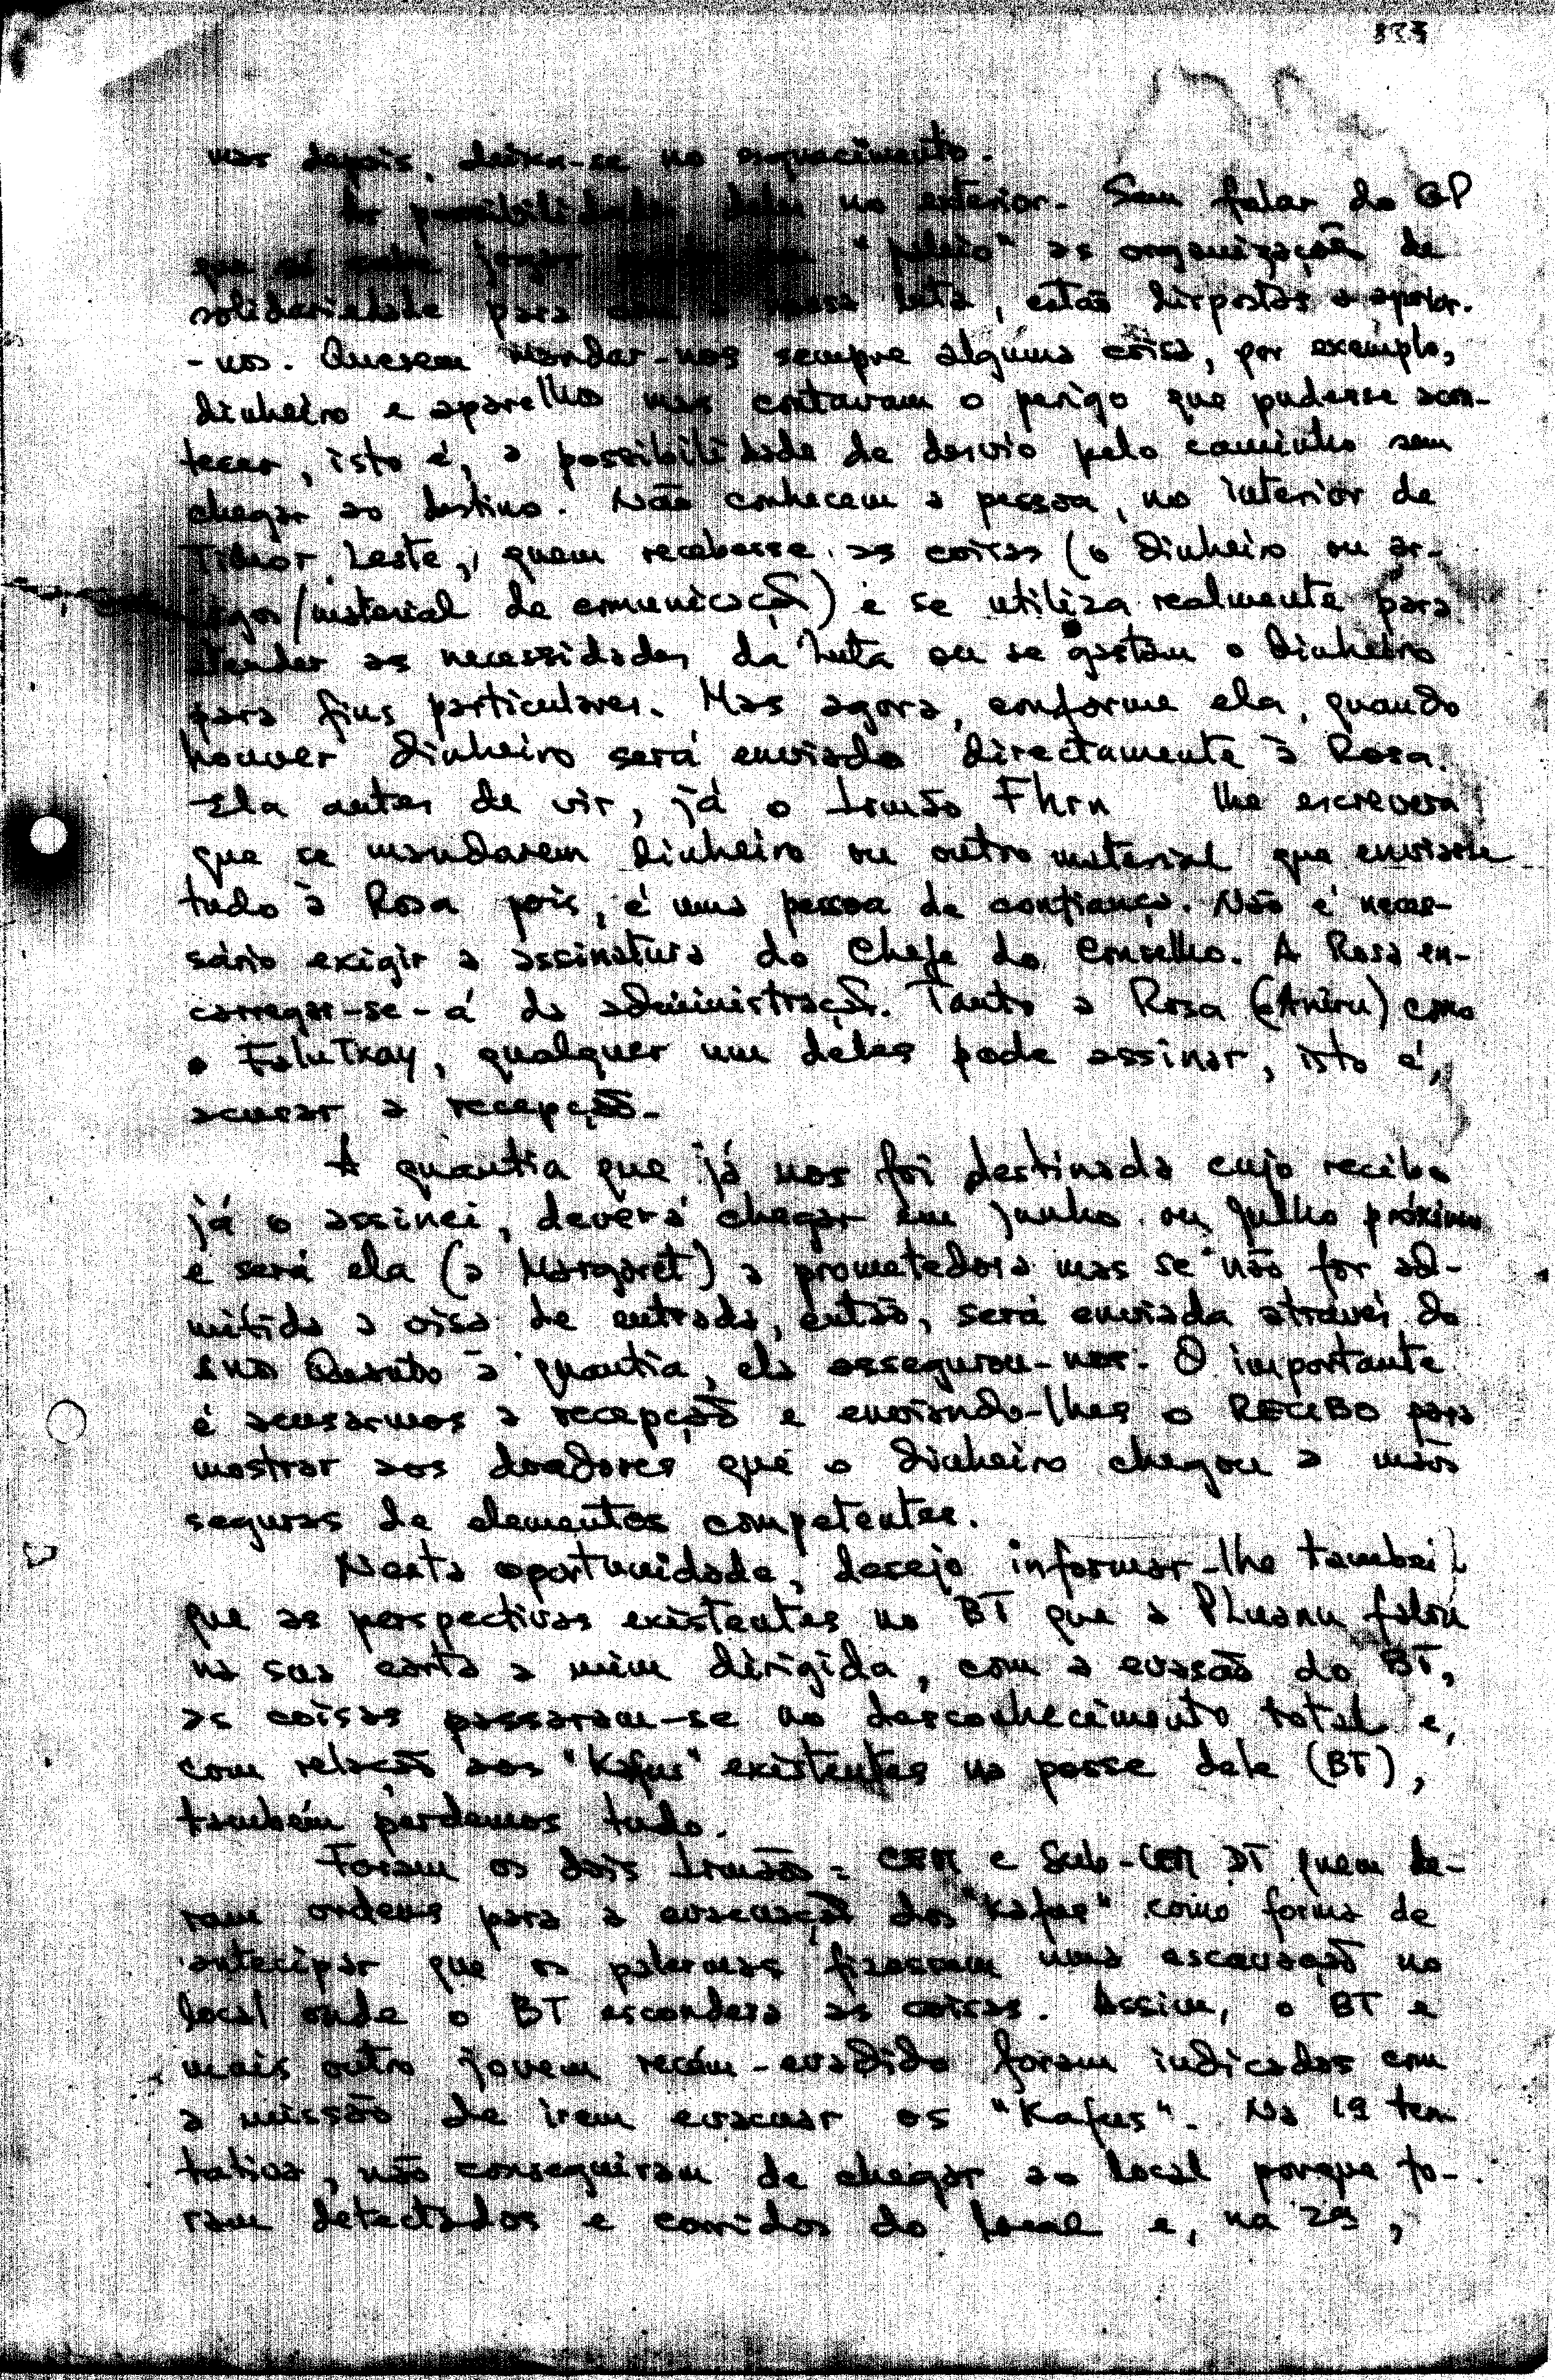 mas depois, deixa-se no esquecimento.
As possibilidades deles no exterior. Sem falar do GP
que só sabe jogar "paleio" as organizações de
solidariedade para com a nossa luta, estão dispostas a apoiar-
-nos. Querem mandar-nos sempre alguma coisa, por exemplo,
dinheiro e aparelhos mas contavam o perigo que pudesse acon-
tecer, isto é, a possibilidade de desvio pelo caminho sem
chegar ao destino. Não conhecem a pessoa, no interior de
Timor Leste, quem recebesse as coisas (o dinheiro ou ar-
tigos/material de comunicação) e se utiliza realmente para
atender as necessidades da Luta ou se gastam o dinheiro
para fins particulares. Mas agora, conforme ela, quando
houver dinheiro será enviado directamente à Rosa.
Ela antes de vir, já o Irmão Fhrn lhe escrevera
que se mandarem dinheiro ou outro material que enviasse
tudo à Rosa pois, é uma pessoa de confiança. Não é neces-
sário exigir a assinatura do Chefe do Conselho. A Rosa en-
carregar-se-á da administração. Tanto a Rosa como
o FaluTkay, qualquer um deles pode assinar, isto é,
acusar a recepção.
A quantia que já nos foi destinada cujo recibo
já o assinei, deverá chegar em junho ou Julho próximo
e será ela (a Margaret) a prometedora mas se não for ad-
mitida a visa de entrada, então, será enviada através do
Quanto à quantia, ela assegurou-nos. O importante
é acusarmos a recepção e enviando-lhes o RECIBO para
mostrar aos doadores que o dinheiro chegou a mãos
seguras de elementos competentes.
Nesta oportunidade, desejo informar-lhe também
que as perspectivas existentes no BT que a falou
na sua carta a mim dirigida, com a evasão do BT,
as coisas passaram-se no desconhecimento total e,
com relação aos "Kafus" existentes na posse dele (BT),
também perdemos tudo.
Foram os dois Irmãos: CER e Sub-CER DT quem de-
ram ordens para a evacuação dos "Kafus" como forma de
antecipar que os palermas fizessem uma escavação no
local onde o BT escondera as coisas. Assim, o BT e
mais outro jovem recém-evadido foram indicados com
a missão de irem evacuar os "Kafus". Na 1ª ten-
tativa, não conseguiram de chegar ao local porque fo-
ram detectados e corridos do local e, na 2ª,